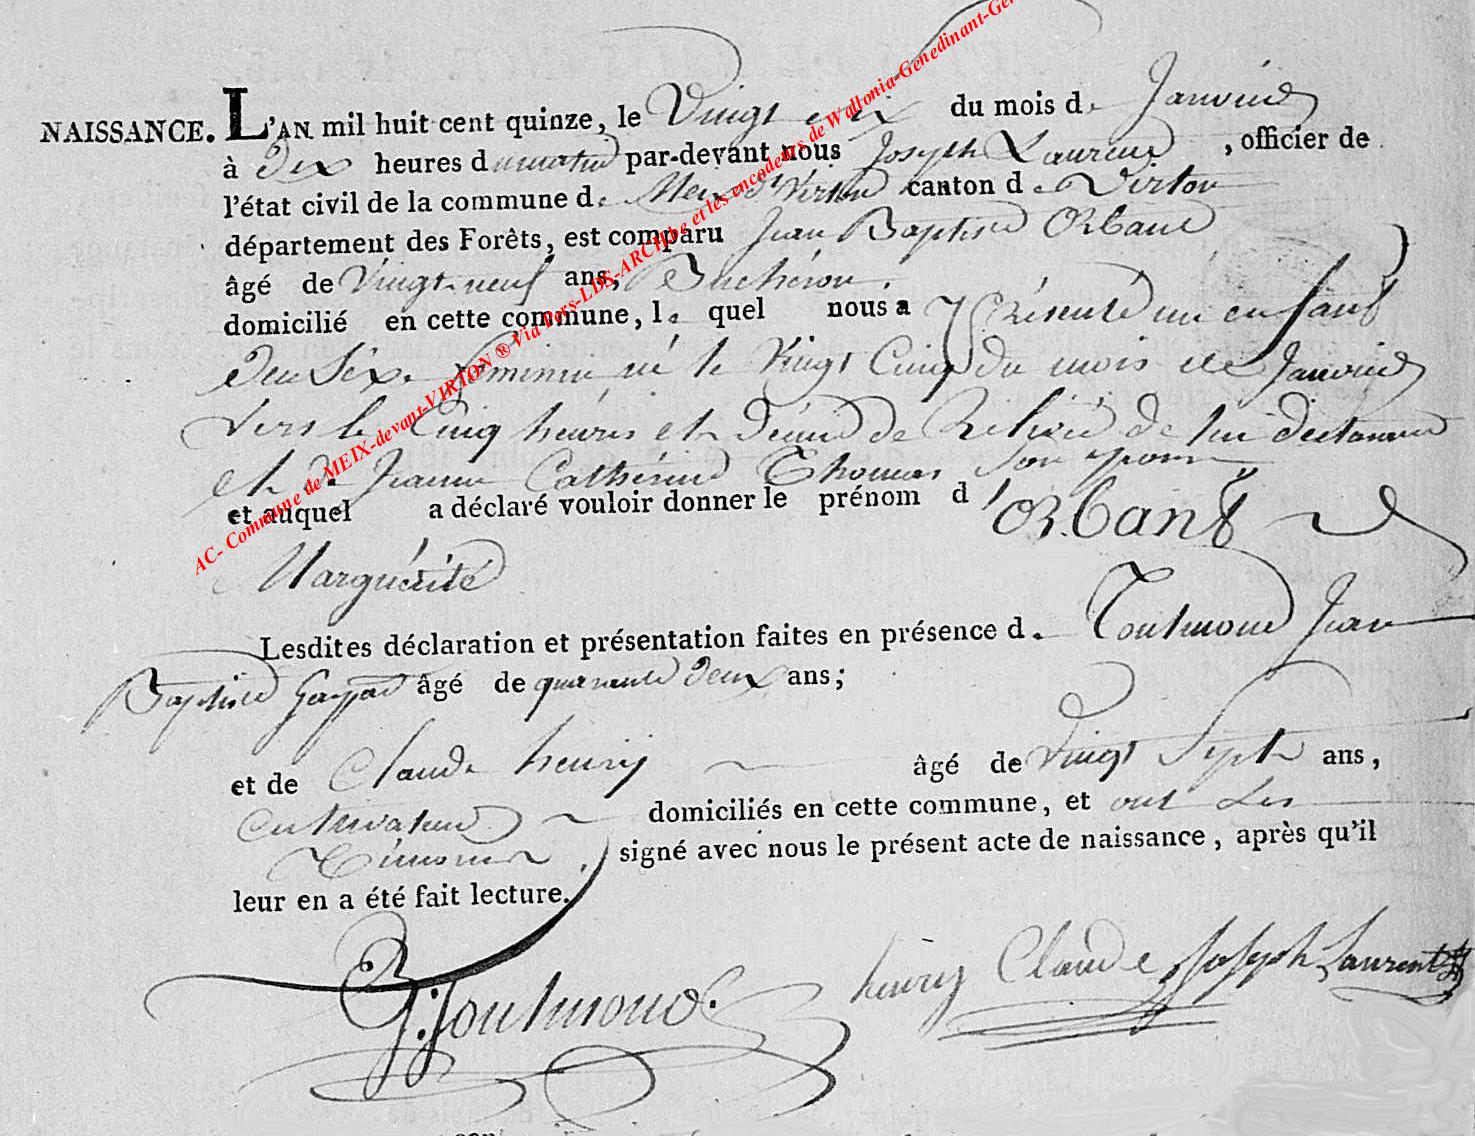 NAISSANCE. L'AN mil huit cent quinze, le Vingt six du mois de Janvier
à dix heures du matin par-devant nous Joseph Laurent, officier de
l'état civil de la commune de Meix dt Virton canton de Virton
département des Forêts, est comparu Jean Baptiste Orbant
âgé de Vingt neuf ans, Bucheron,
domicilié en cette commune, le quel nous a présenté un enfant
du Sexe feminin né le Vingt Cinq du mois de Janvier
vers les Cinq heures et demie de Relevé de lui declarant
et de Jeanne Catherine Thomas Son epouse
et auquel a déclaré vouloir donner le prénom d'Orbant
Marguérite
Lesdites déclaration et présentation faites en présence de Toutmond Jean
Baptiste Gaspar âgé de quarante deux ans;
et de Claude henry âgé de Vingt Sept ans,
Cultivateur domiciliés en cette commune, et ont Les
Témoins, signé avec nous le présent acte de naissance, après qu'il
leur en a été fait lecture.
Toutmond.
henry Claude Joseph Laurent
AC- Commune de MEIX-devant-VIRTON ® Via Pers-LDS-ARCH.be et les encodeurs de Wallonia-Genedinant-Gen